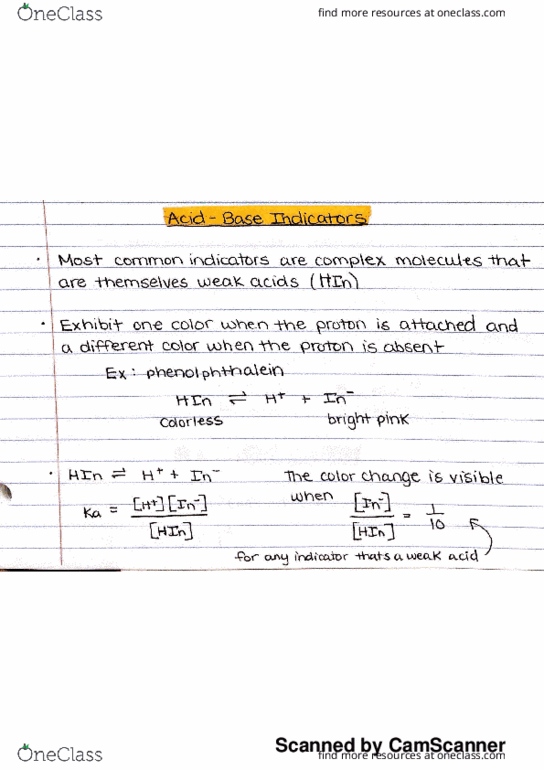 OneClass
find more resources at oneclass.com
Acid - Base Indicators
· Most common indicators are complex molecules that
are themselves weak acids (HIn)
· Exhibit one color when the proton is attached and
a different color when the proton is absent
Ex: phenolphthalein
HIn ⇌ H⁺ + In⁻
colorless bright pink
· HIn ⇌ H⁺ + In⁻
Ka = [H⁺][In⁻] / [HIn]
The color change is visible
when [In⁻] / [HIn] = 1/10
for any indicator thats a weak acid
Scanned by CamScanner
OneClass
find more resources at oneclass.com